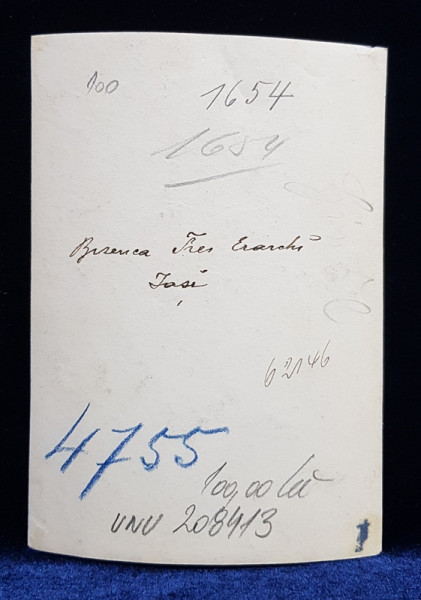 100
1654
1654
Biserica Trei Erarchi
Iași
62146
4755
100,00 lei
UNU 208413